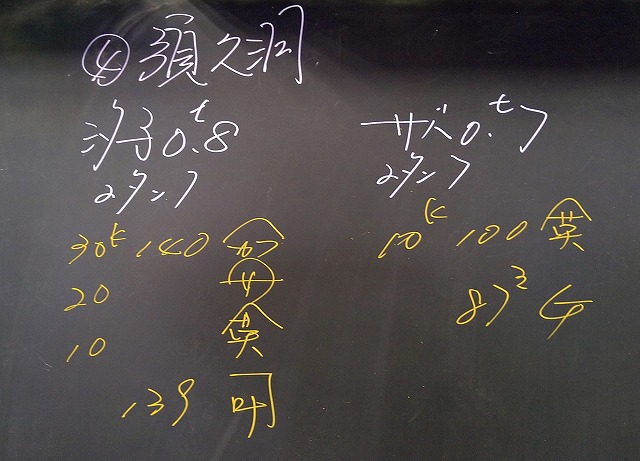 ④須久洞
汐子0.8t
2タンク
30k 140 カ
20 サ
10 英
139 叶
サバ0.7t
2タンク
10k 100 英
87²